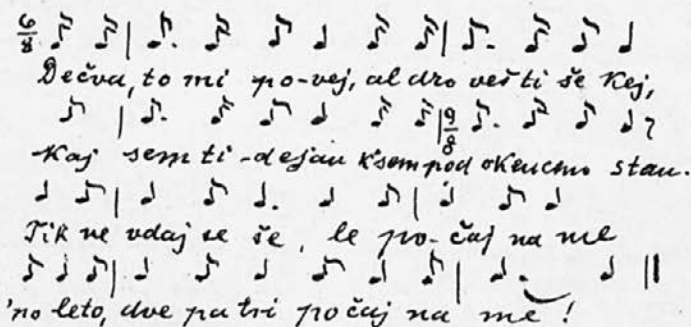 6/8
Dečva, to mi po-vej, al dro veš ti še kej,
9/8
Kaj sem ti -dejau k'sem pod okencmo stau.
Tik ne vdaj se še, le po-čaj na me
'no leto, dve pa tri počaj na me!